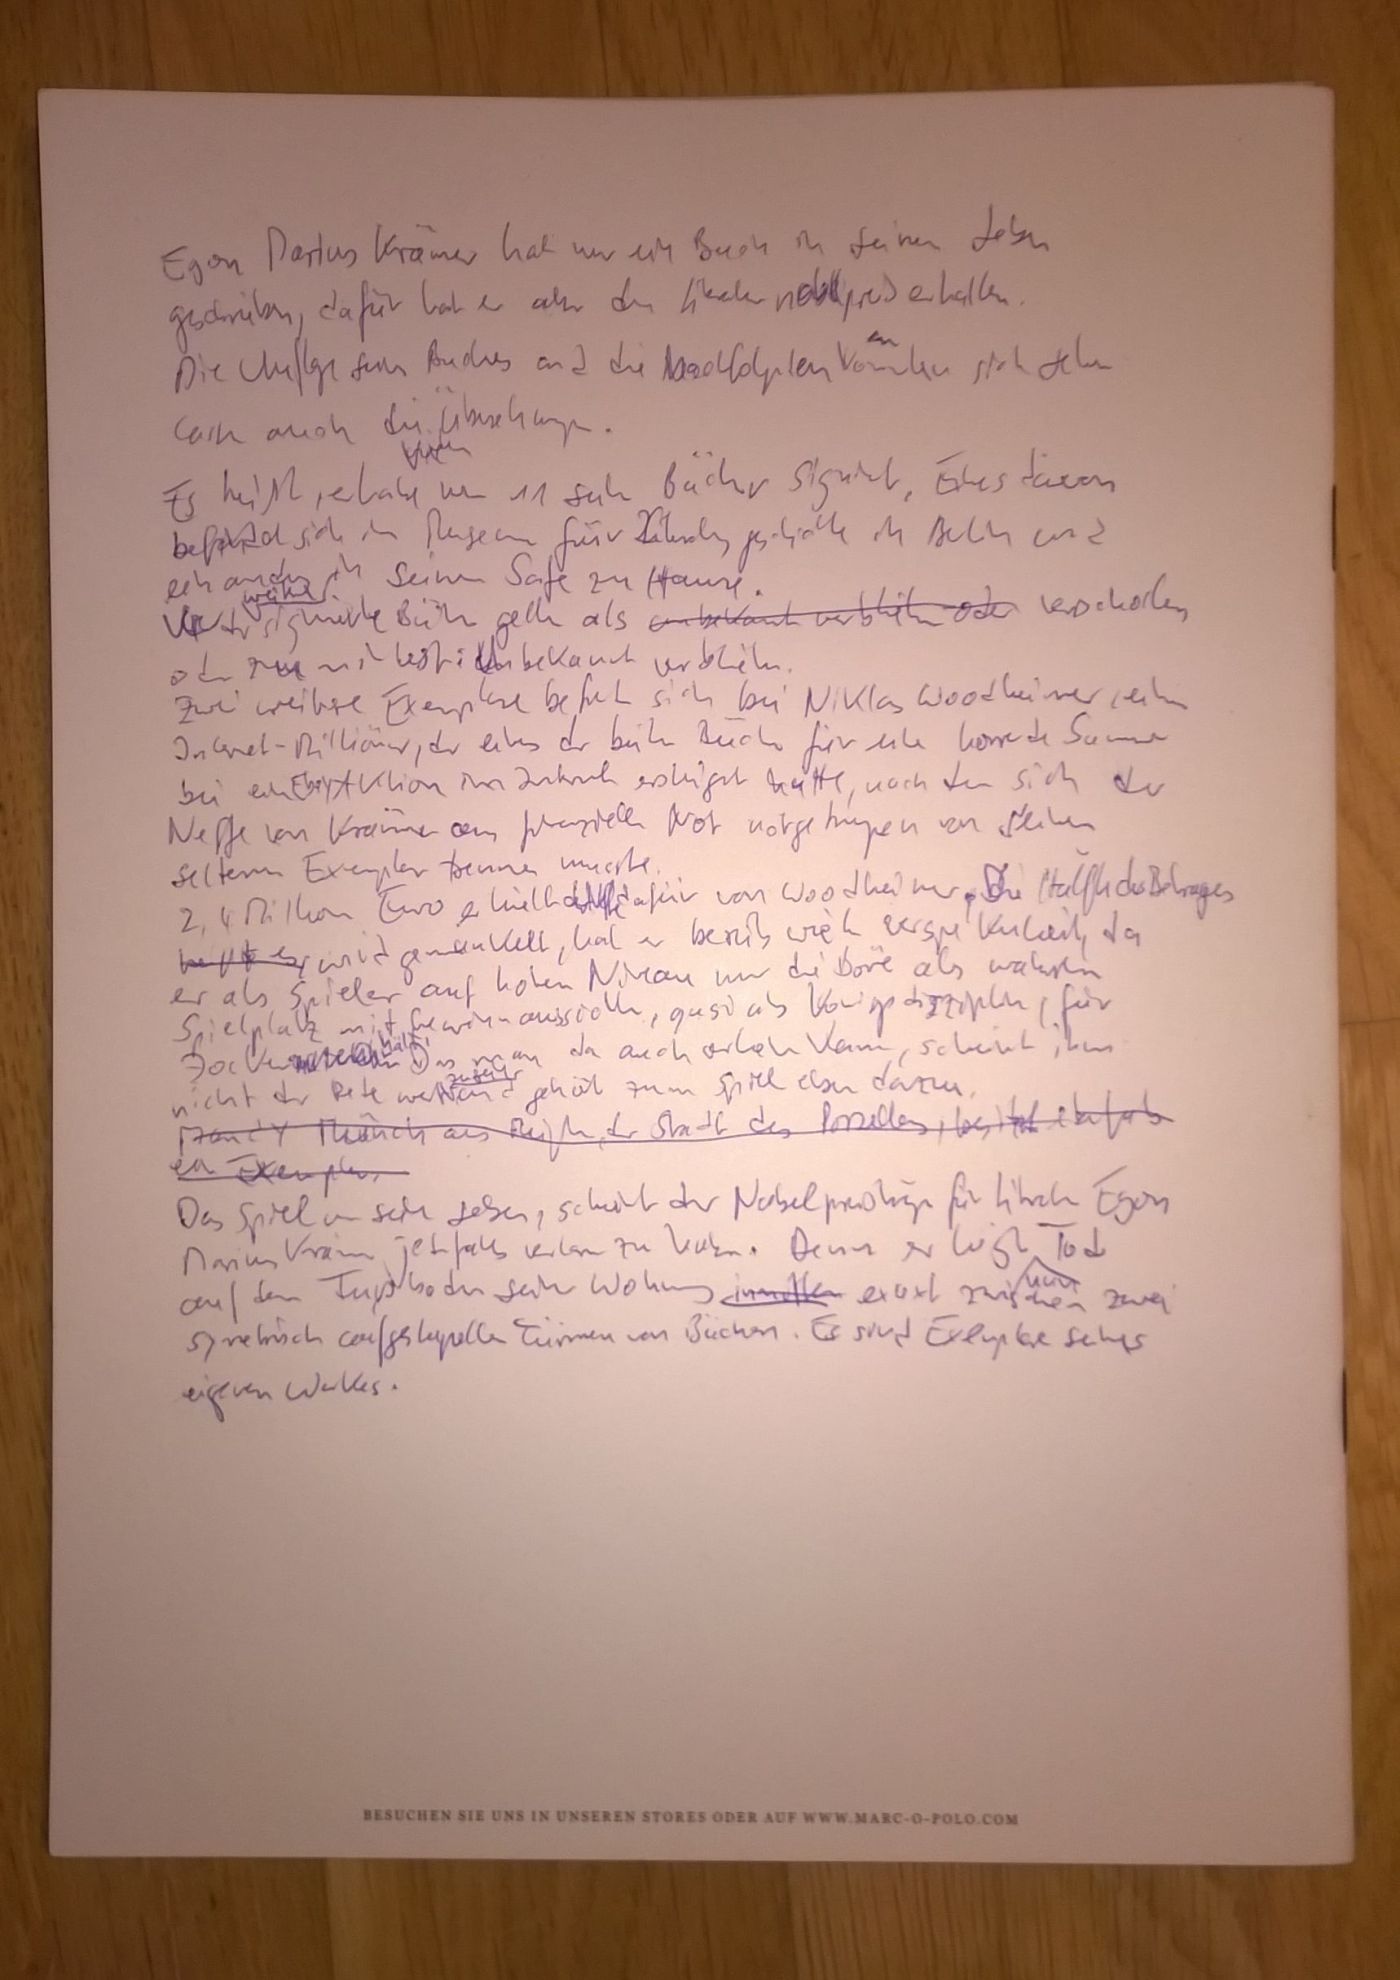 Egon Marius Krämer hat nur ein Buch in seinem Leben
geschrieben, dafür hat er aber den Literaturnobelpreis erhalten.
Die Auflage seines Buches und die Nachfolgenden sich sehen
auch die Übersetzungen.
Es heißt, er habe nur 11 seiner Bücher signiert, Eines davon
befindet sich im Museum für Literaturgeschichte in Berlin und
ein anderes in seinem Safe zu Hause.
weitere
Vier der signierte Bücher gelten als unbekannt verblieben oder verschollen
oder zumindest unbekannt verblieben.
Zwei weitere Exemplare befinden sich bei Niklas Woodheimer, einem
Internet-Millionär, der eines der beiden Bücher für eine horrende Summe
bei einer Ebay Auktion im Internet ersteigert hatte, nach dem sich der
Neffe von Krämer aus finanzieller Not notgedrungen von seinem
seltenen Exemplar trennen musste.
2,4 Million Euro erhielt dafür von Woodheimer. Die Hälfte des Betrages
wird gemunkelt, hat er bereits wieder verspekuliert, da
er als Spieler auf hohem Niveau nur die Börse als wahren
Spielplatz mit Gewinnaussichten, quasi als Königsdisziplin, für
Zocker hält. Das man da auch verlieren kann, scheint ihm
nicht der Rede wert und gehört zum Spiel eben dazu.
Mönch aus Meißen, der Stadt des Porzellans, besitzt ebenfalls
ein Exemplar.
Das Spiel um sein Leben, scheint der Nobelpreisträger für Literatur Egon
Marius Krämer jedenfalls verloren zu haben. Denn er liegt Tod
auf dem Fußboden seiner Wohnung inmitten exakt zwischen zwei
symetrisch aufgestapelten Türmen von Büchern. Es sind Exemplare seines
eigenen Werkes.
BESUCHEN SIE UNS IN UNSEREN STORES ODER AUF WWW.MARC-O-POLO.COM